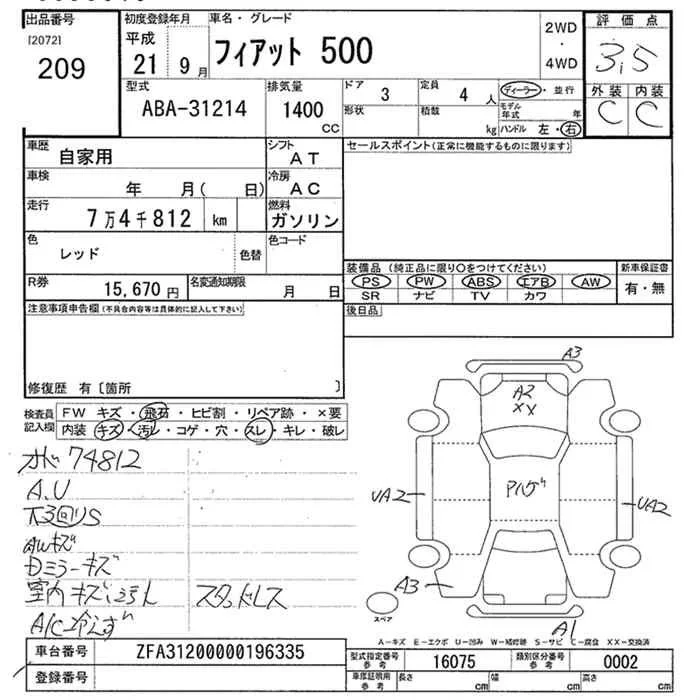 出品番号
[2072]
209
初度登録年月
平成
21 9 月
車名・グレード
フィアット 500
2WD
・
4WD
評価点
3.5
外装 内装
C C
型式
ABA-31214
排気量
1400
CC
ドア 3
形状
定員 4 人
積載 kg
ディーラー・並行
モデル年式 年
ハンドル 左・右
車歴
自家用
シフト
AT
セールスポイント(正常に機能するものに限ります)
車検
年 月( 日)
冷房
AC
走行
7万4千812 km
燃料
ガソリン
色
レッド
色替
色コード
R券
15,670 円
名変通知期限
月 日
装備品 (純正品に限り○をつけてください)
PS PW ABS エアB AW
SR ナビ TV カワ
新車保証書
有・無
注意事項申告欄(不具合内容等は具体的に記入して下さい)
後日品
修復歴 有〔箇所 〕
検査員記入欄
FW キズ・飛石・ヒビ割・リペア跡・×要
内装 キズ・汚レ・コゲ・穴・スレ・キレ・破レ
74812
A.U
下回りS
AWキズ
Dミラーキズ
室内キズ
スタッドレス
A/C冷えず
A3
A2
XX
UA2
UA2
A3
A1
スペア
A−キズ E−エクボ U−凹み W−補修跡 S−サビ C−腐食 XX−交換済
車台番号
ZFA31200000196335
登録番号
型式指定番号
参考
16075
類別区分番号
参考
0002
車庫証明用
参考
長さ cm
幅 cm
高さ cm